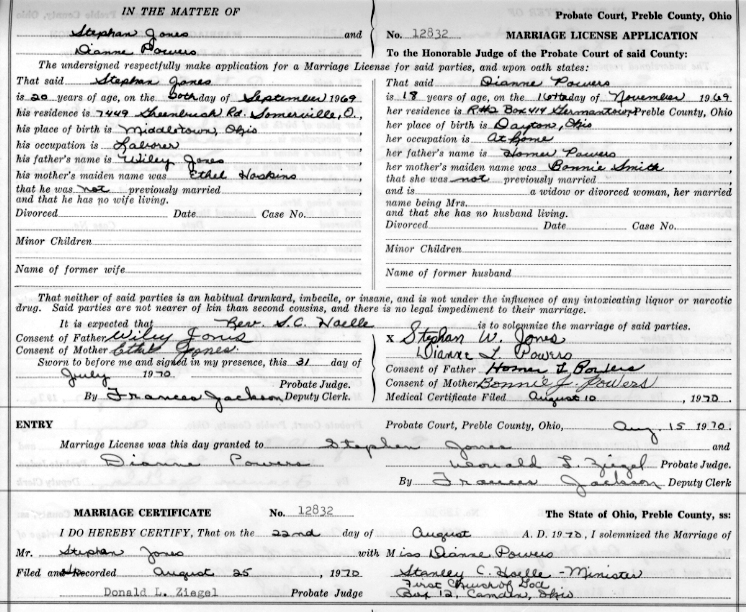 IN THE MATTER OF
Stephan Jones and
Dianne Powers
Probate Court, Preble County, Ohio
No. 12832 MARRIAGE LICENSE APPLICATION
To the Honorable Judge of the Probate Court of said County:
The undersigned respectfully make application for a Marriage License for said parties, and upon oath states:
That said Stephan Jones
is 20 years of age, on the day of September 1969
his residence is 7449 Greenbush Rd. Somerville, O.
his place of birth is Middletown, Ohio
his occupation is Laborer
his father's name is Wiley Jones
his mother's maiden name was Ethel Hoskins
that he was not previously married
and that he has no wife living.
Divorced Date Case No.
Minor Children
Name of former wife
That said Dianne Powers
is 18 years of age, on the 16th day of November 1969
her residence is R#2 Box 414 Germantown, Preble County, Ohio
her place of birth is Dayton, Ohio
her occupation is At Home
her father's name is Homer Powers
her mother's maiden name was Bonnie Smith
that she was not previously married
and is a widow or divorced woman, her married
name being Mrs.
and that she has no husband living.
Divorced Date Case No.
Minor Children
Name of former husband
That neither of said parties is an habitual drunkard, imbecile, or insane, and is not under the influence of any intoxicating liquor or narcotic
drug. Said parties are not nearer of kin than second cousins, and there is no legal impediment to their marriage.
It is expected that Rev. S.C. Hoelle is to solemnize the marriage of said parties.
Consent of Father Wiley Jones
Consent of Mother Ethel Jones
Sworn to before me and signed in my presence, this 31 day of
July 1970 Probate Judge.
By Frances Jackson Deputy Clerk.
X Stephan W. Jones
Dianne L Powers
Consent of Father Homer L Powers
Consent of Mother Bonnie J. Powers
Medical Certificate Filed August 10, 1970
ENTRY
Probate Court, Preble County, Ohio, Aug 15 1970.
Marriage License was this day granted to Stephen Jones and
Dianne Powers
Donald L. Ziegel Probate Judge.
By Frances Jackson Deputy Clerk
MARRIAGE CERTIFICATE No. 12832 The State of Ohio, Preble County, ss:
I DO HEREBY CERTIFY, That on the 22nd day of August A. D. 1970, I solemnized the Marriage of
Mr. Stephan Jones with Miss Dianne Powers
Filed and Recorded August 25, 1970
Donald L. Ziegel Probate Judge
Stanley C. Hoelle - Minister
First Church of God
Box 12, Camden, Ohio